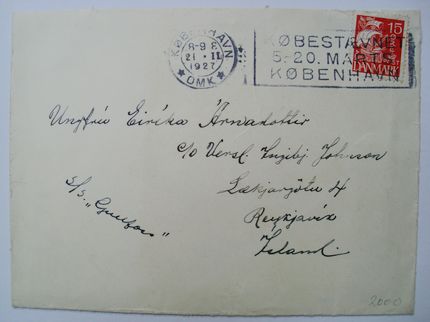 KØBENHAVN
8-9 E
21 II
1927
★ OMK ★
KØBESTÆVNE
5.-20. MARTS
KØBENHAVN
15
DANMARK
Ungfrú Eiríka Árnadóttir
c/o Versl. Ingibj. Johnson
Lækjargötu 4
Reykjavík
Ísland.
S/S. "Gullfoss"
2000